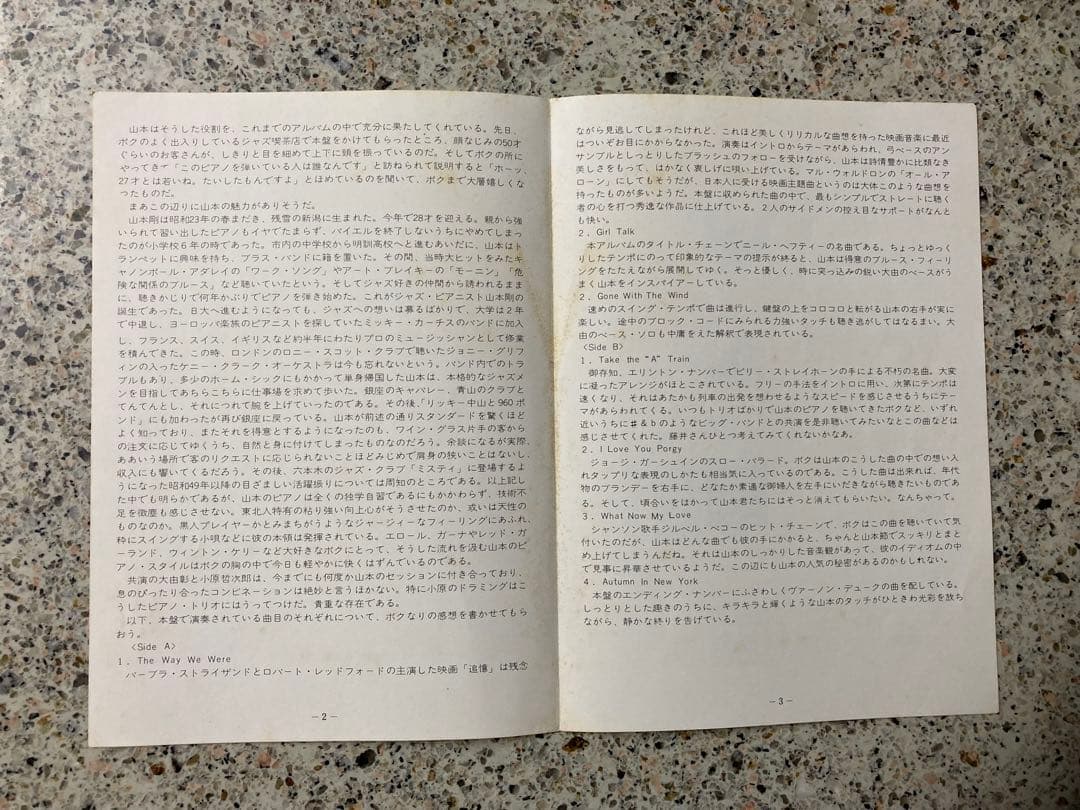 山本はそうした役割を、これまでのアルバムの中で充分に果たしてくれている。先日、
ボクのよく出入りしているジャズ喫茶店で本盤をかけてもらったところ、顔なじみの50才
ぐらいのお客さんが、しきりと目を細めて上下に頭を振っているのだ。そしてボクの所に
やってきて「このピアノを弾いている人は誰なんです」と訪ねられて説明すると「ホーッ、
27才とは若いね。たいしたもんですよ」とほめているのを聞いて、ボクまで大層嬉しくな
ったものだ。
まあこの辺りに山本の魅力がありそうだ。
山本剛は昭和23年の春まだき、残雪の新潟に生まれた。今年で28才を迎える。親から強
いられて習い出したピアノもイヤでたまらず、バイエルを終了しないうちにやめてしまっ
たのが小学校6年の時であった。市内の中学校から明訓高校へと進むあいだに、山本はト
ランペットに興味を持ち、ブラス・バンドに籍を置いた。その間、当時大ヒットをみたキ
ャノンボール・アダレイの「ワーク・ソング」やアート・ブレイキーの「モーニン」「危
険な関係のブルース」など聴いていたという。そしてジャズ好きの仲間から誘われるまま
に、聴きかじりで何年かぶりでピアノを弾き始めた。これがジャズ・ピアニスト山本剛の
誕生であった。日大へ進むようになっても、ジャズへの想いは募るばかりで、大学は2年
で中退し、ヨーロッパ楽旅のピアニストを探していたミッキー・カーチスのバンドに加入
し、フランス、スイス、イギリスなど約半年にわたりプロのミュージッシャンとして修業
を積んできた。この時、ロンドンのロニー・スコット・クラブで聴いたジョニー・グリフ
ィンの入ったケニー・クラーク・オーケストラは今も忘れないという。バンド内でのトラ
ブルもあり、多少のホーム・シックにもかかって単身帰国した山本は、本格的なジャズメ
ンを目指してあちらこちらに仕事場を求めて歩いた。銀座のキャバレー、青山のクラブと
てんてんとし、それにつれて腕を上げていったのである。その後、「リッキー中山と960ポ
ンド」にも加わったが再び銀座に戻っている。山本が前述の通りスタンダードを驚くほど
よく知っており、またそれを得意とするようになったのも、ワイン・グラス片手の客から
の注文に応じてゆくうち、自然と身に付けてしまったものなのだろう。余談になるが実際、
ああいう場所で客のリクエストに応じられないことほどみじめで肩身の狭いことはないし、
収入にも響いてくるだろう。その後、六本木のジャズ・クラブ「ミスティ」に登場するよ
うになった昭和49年以降の目ざましい活躍振りについては周知のところである。以上記し
た中でも明らかであるが、山本のピアノは全くの独学自習であるにもかかわらず、技術不
足を微塵も感じさせない。東北人特有の粘り強い向上心がそうさせたのか、或いは天性の
ものなのか。黒人プレイヤーかとみまちがうようなジャージィーなフィーリングにあふれ、
粋にスイングする小唄などに彼の本領は発揮されている。エロール、ガーナやレッド・ガ
ーランド、ウィントン・ケリーなど大好きなボクにとって、そうした流れを汲む山本のピ
アノ・スタイルはボクの胸の中で今日も軽やかに快くはずんでいるのである。
共演の大由彰と小原哲次郎は、今までにも何度か山本のセッションに付き合っており、
息のぴったり合ったコンビネーションは絶妙と言うほかない。特に小原のドラミングはこ
うしたピアノ・トリオにはうってつけだ。貴重な存在である。
以下、本盤で演奏されている曲目のそれぞれについて、ボクなりの感想を書かせてもら
おう。
〈Side A〉
1. The Way We Were
バーブラ・ストライザンドとロバート・レッドフォードの主演した映画「追憶」は残念
－2－
ながら見逃してしまったけれど、これほど美しくリリカルな曲想を持った映画音楽に最近
はついぞお目にかからなかった。演奏はイントロからテーマがあらわれ、弓ベースのアン
サンブルとしっとりしたブラッシュのフォローを受けながら、山本は詩情豊かに比類なき
美しさをもって、はかなく哀しげに唄い上げている。マル・ウォルドロンの「オール・ア
ローン」にしてもそうだが、日本人に受ける映画主題曲というのは大体このような曲想を
持ったものが多いようだ。本盤に収められた曲の中で、最もシンプルでストレートに聴く
者の心を打つ秀逸な作品に仕上げている。2人のサイドメンの控え目なサポートがなんと
も快い。
2. Girl Talk
本アルバムのタイトル・チェーンでニール・ヘフティーの名曲である。ちょっとゆっく
りしたテンポにのって印象的なテーマの提示が終ると、山本は得意のブルース・フィーリ
ングをたたえながら展開してゆく。そっと優しく、時に突っ込みの鋭い大由のベースがう
まく山本をインスパイアーしている。
2. Gone With The Wind
速めのスイング・テンポで曲は進行し、鍵盤の上をコロコロと転がる山本の右手が実に
楽しい。途中のブロック・コードにみられる力強いタッチも聴き逃がしてはなるまい。大
由のベース・ソロも中庸をえた解釈で表現されている。
〈Side B〉
1. Take the "A" Train
御存知、エリントン・ナンバーでビリー・ストレイホーンの手による不朽の名曲。大変
に凝ったアレンジがほどこされている。フリーの手法をイントロに用い、次第にテンポは
速くなり、それはあたかも列車の出発を想わせるようなスピードを感じさせるうちにテー
マがあらわれてくる。いつもトリオばかりで山本のピアノを聴いてきたボクなど、いずれ
近いうちに♯&♭のようなビッグ・バンドとの共演を是非聴いてみたいなとこの曲などは
感じさせてくれた。藤井さんひとつ考えてみてくれないかなあ。
2. I Love You Porgy
ジョージ・ガーシュインのスロー・バラード。ボクはこういう曲の中での想い入
れタップリな表現のしかたも相当気に入っているのである。こうした曲は出来れば、年代
物のブランデーを右手に、どなたか素適な御婦人を左手にいだきながら聴きたいものであ
る。そして、頃合いをはかって山本君たちにはそっと消えてもらいたい。なんちゃって。
3. What Now My Love
シャンソン歌手ジルベル・ベコーのヒット・チェーンで、ボクはこの曲を聴いていて気
付いたのだが、山本はどんな曲でも彼の手にかかると、ちゃんと山本節でスッキリとまと
め上げてしまうんだね。それは山本のしっかりした音楽観があって、彼のイディオムの中
で見事に昇華させているようだ。この辺にも山本の人気の秘密があるのかもしれない。
4. Autumn In New York
本盤のエンディング・ナンバーにふさわしくヴァーノン・デュークの曲を配している。
しっとりとした趣きのうちに、キラキラと輝くような山本のタッチがひときわ光彩を放ち
ながら、静かな終りを告げている。
－3－